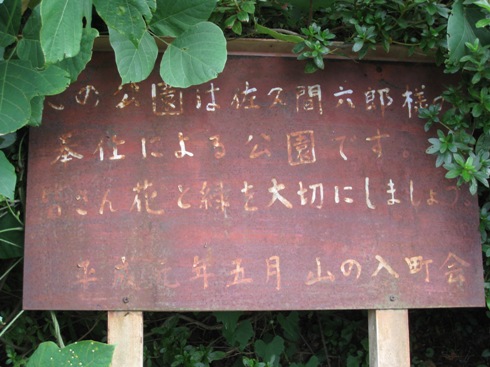 この公園は佐久間六郎様の
奉仕による公園です。
皆さん花と緑を大切にしましょう
平成元年五月 山の入町会